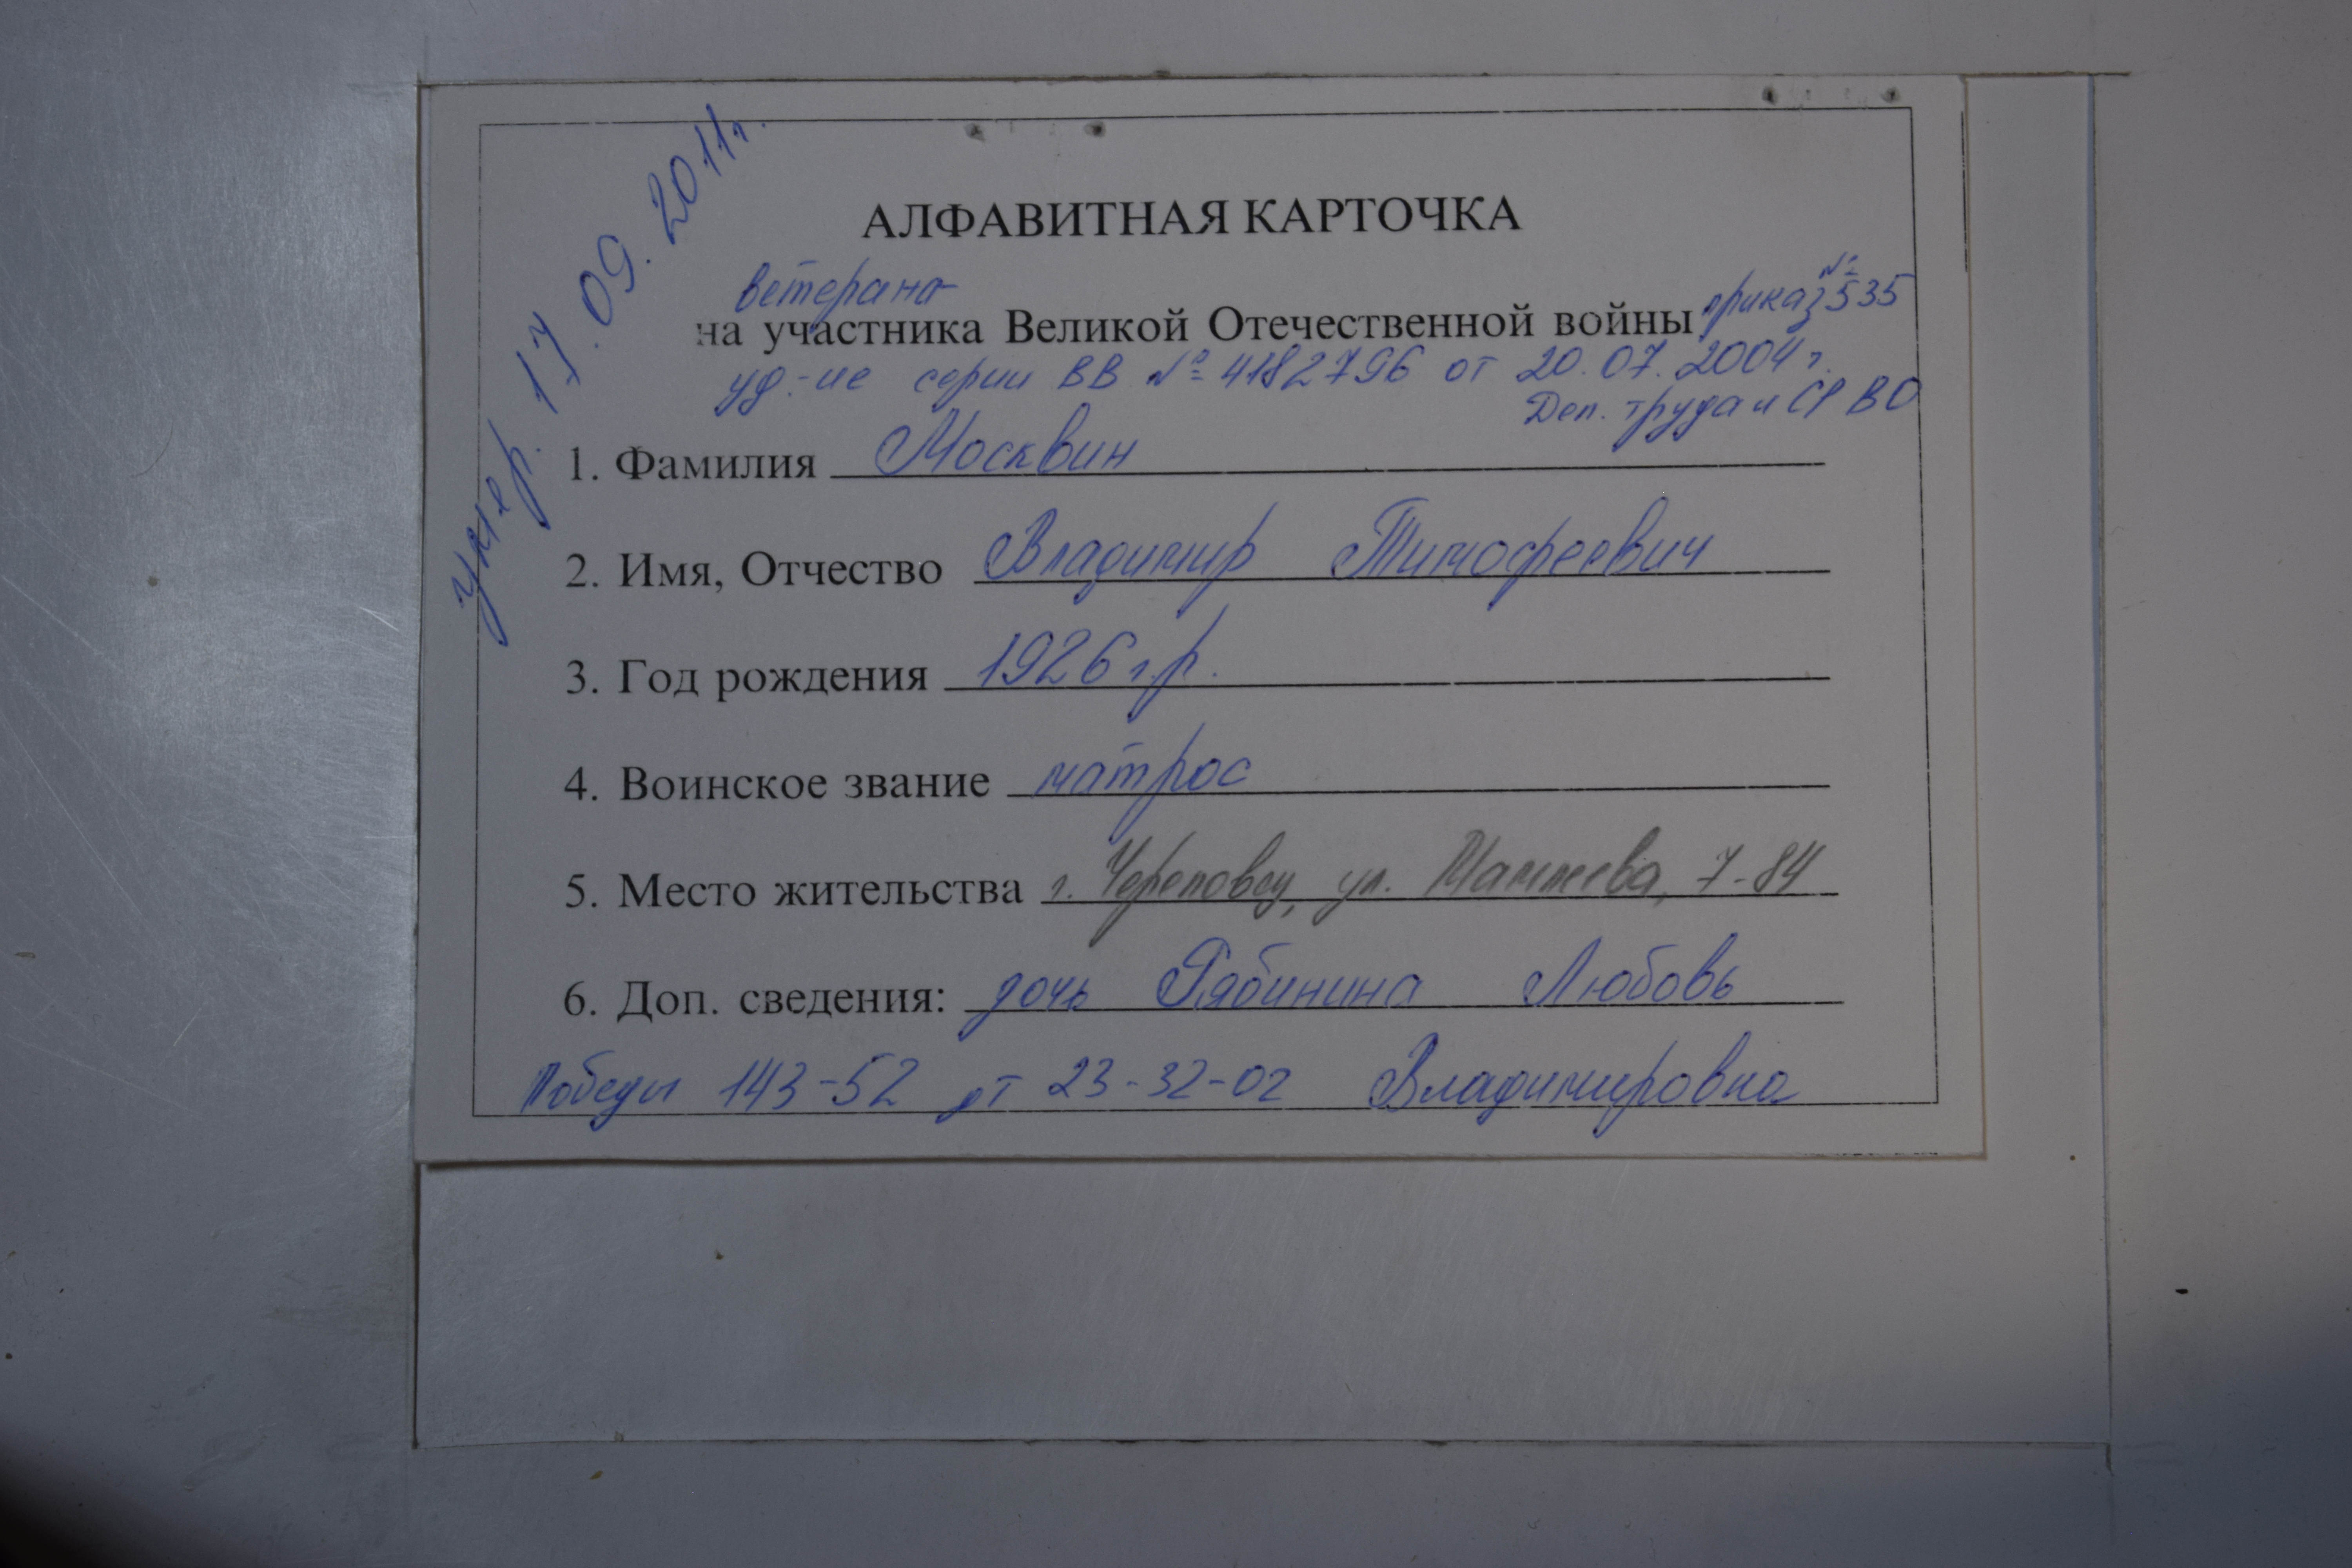 умер. 17.09.2011г.
АЛФАВИТНАЯ КАРТОЧКА
ветерана
на участника Великой Отечественной войны приказ №535
уд-ие серии ВВ № 4182796 от 20.07.2004 г.
Деп. труда и СР ВО
1. Фамилия Москвин
2. Имя, Отчество Владимир Тимофеевич
3. Год рождения 1926 г.р.
4. Воинское звание матрос
5. Место жительства г. Череповец, ул. Мамлеева, 7-84
6. Доп. сведения: дочь Рябинина Любовь
Победы 143-52 дт 23-32-02 Владимировна